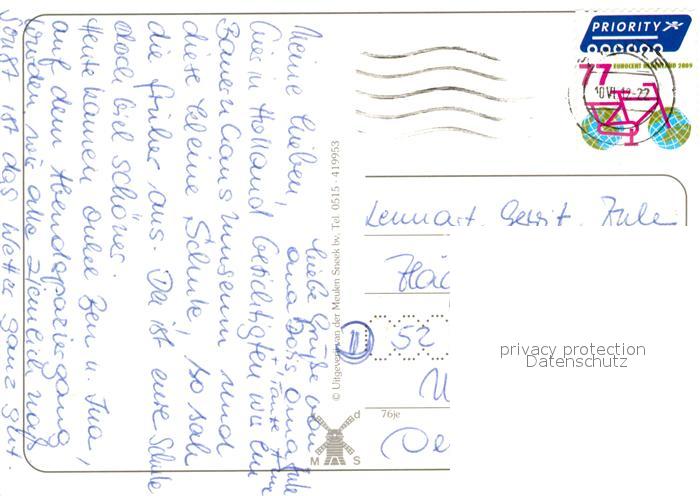 Meine Lieben,
hier in Holland besichtigten wir ein
Bauernhausmuseum und
diese kleine Schule, so sah
die früher aus. Da ist eure Schule
doch viel schöner.
Heute kamen Onkel Ben u. Ina,
auf dem Abendspaziergang
wurden wir alle ziemlich naß
Sonst ist das Wetter ganz gut.
Liebe Grüße von
© Uitgeverij van der Meulen Sneek bv. Tel. 0515 - 419953
PRIORITY
77 EUROCENT NEDERLAND 2009
Lennart, Gerrit, Jule
52
privacy protection
Datenschutz
76je
d
M S